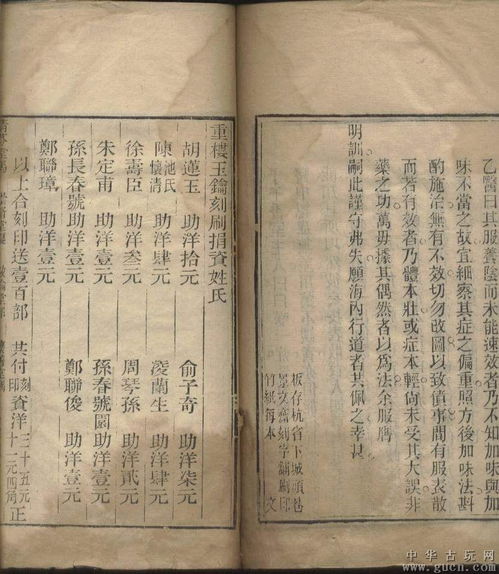 乙醫曰其服養陰而未能速效者乃不知加味與加
味不當之故宜細察其症之偏重照方後加味法斟
酌施治無有不效切勿改圖以致僨事間有服表散
而著有效者乃體本壯或症本輕尚未受其大誤非
藥之功萬毋據其偶然者以為法余服膺
明訓嗣此謹守弗失願海內行道者其佩之幸甚
板存杭省下城頭巷
景文齋刻字鋪刷印
竹紙每本 文
重樓玉鑰刻刷捐資姓氏
胡蓮玉 助洋拾元 俞子奇 助洋柒元
陳池氏懷清 助洋肆元 淩蘭生 助洋肆元
徐壽臣 助洋叁元 周琴孫 助洋貳元
朱定甫 助洋壹元 孫春號閶 助洋壹元
孫長春號 助洋壹元 鄭聯俊 助洋壹元
鄭聯璋 助洋壹元
以上合刻印送壹百部 共付刻印資洋三十五元十二元四角正
中华古玩网
www.gucn.com